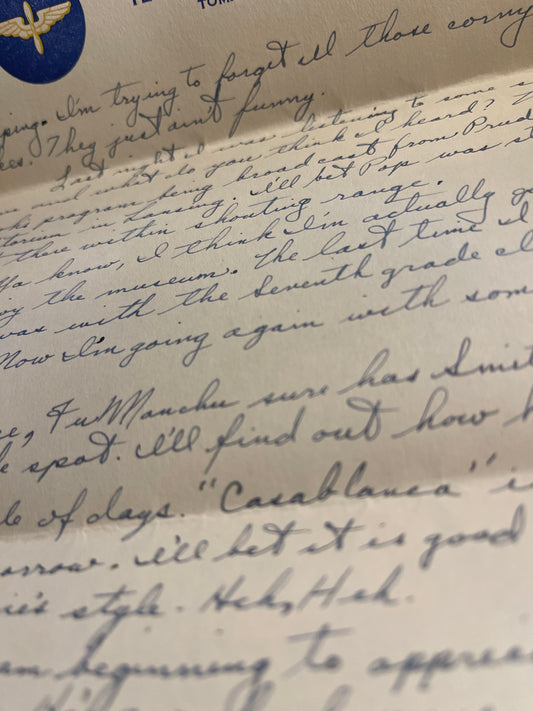 TOM
ping. I'm trying to forget all those corny
ees. They just ain't funny.
Last night I was listening to some
and what do you think I heard?
program being broadcast from Prud
torium in Lansing. I'll bet Pop was
there within shouting range.
Ya know, I think I'm actually
the museum. The last time I
was with the Seventh grade cl
Now I'm going again with som
Fu Manchu sure has Smit
spot. I'll find out how h
le of days. "Casablanca" i
orrow. I'll bet it is good
ie's style. Heh, Heh.
am beginning to apprec